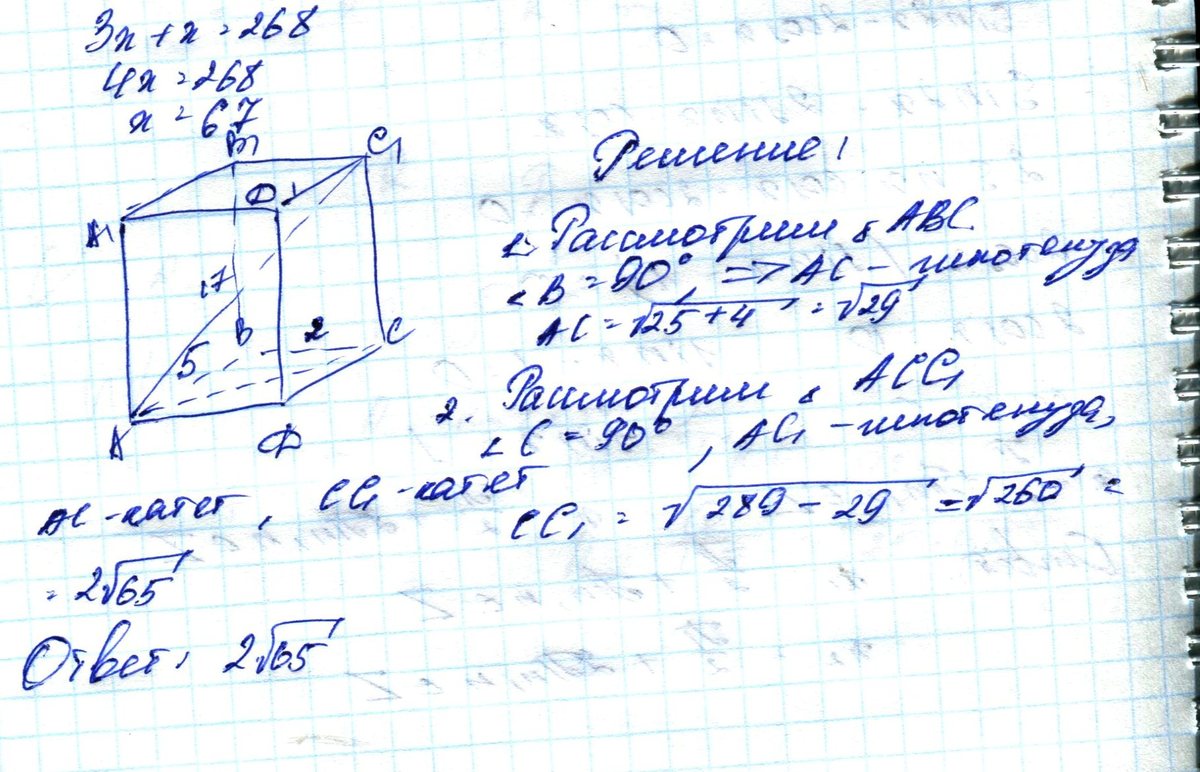 3x + x = 268
4x = 268
x = 67
B1
C1
D1
A1
17
B
2
C
5
A
D
Решение:
1. Рассмотрим △ ABC
∠B = 90°, => AC - гипотенуза
AC = √25+4 = √29
2. Рассмотрим △ ACC1
∠C = 90°, AC1 - гипотенуза,
AC - катет, CC1 - катет
CC1 = √289 - 29 = √260 =
= 2√65
Ответ: 2√65